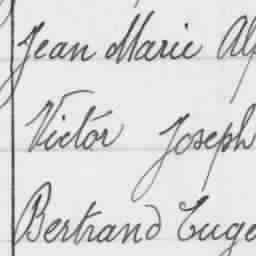 Jean Marie Alp
Victor Joseph
Bertrand Euge